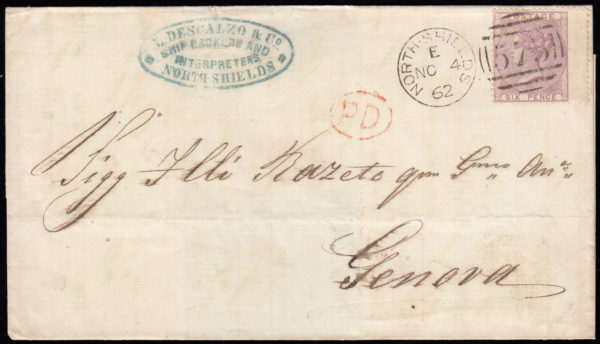 DESCALZO & Co
SHIP BROKERS AND
INTERPRETERS
NORTH SHIELDS
NORTH-SHIELDS
E
NO 4
62
POSTAGE
SIX PENCE
PD
Sigg Flli Razeto qm Gmo Anea
Genova